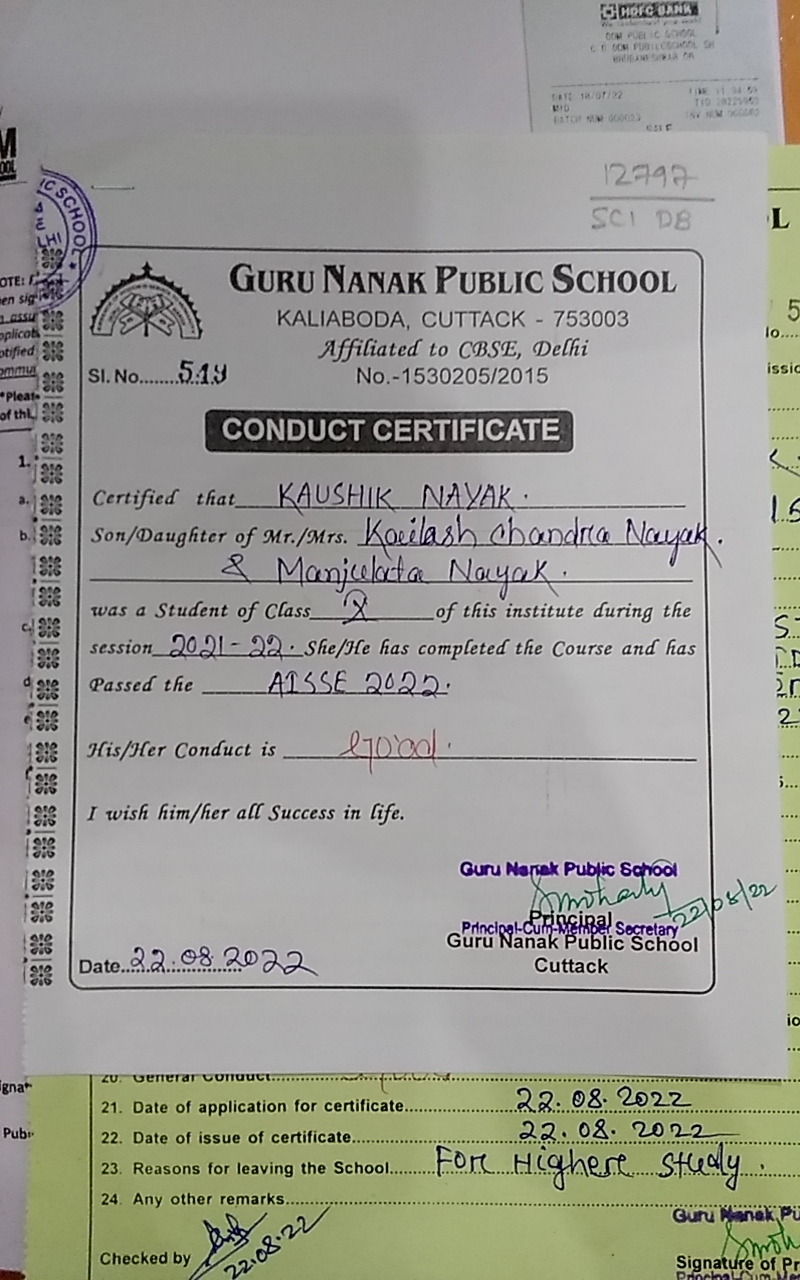 HDFC BANK
We understand your world
ODM PUBLIC SCHOOL
BHUBANESHWAR OR
DATE 18/07/22
MID
BATCH NUM
SALE
12797
SCI DB
IC SCHOOL
GURU NANAK PUBLIC SCHOOL
KALIABODA, CUTTACK - 753003
Affiliated to CBSE, Delhi
Sl. No........519 No.-1530205/2015
CONDUCT CERTIFICATE
Certified that KAUSHIK NAYAK.
Son/Daughter of Mr./Mrs. Kailash Chandra Nayak.
& Manjulata Nayak.
was a Student of Class X of this institute during the
session 2021-22. She/He has completed the Course and has
Passed the AISSE 2022.
His/Her Conduct is Good.
I wish him/her all Success in life.
Guru Nanak Public School
22/08/22
Principal
Principal-Cum-Member Secretary
Guru Nanak Public School
Cuttack
Date..22.08.2022
20. General Conduct
21. Date of application for certificate 22.08.2022
22. Date of issue of certificate 22.08.2022
23. Reasons for leaving the School For Highere Study.
24. Any other remarks
Guru Nanak Pu
Checked by 22.08.22
Signature of Pr
Principal-Cum-Mem